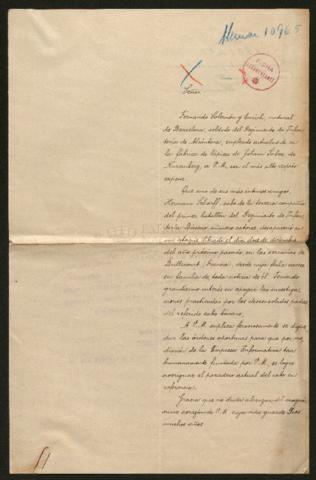 Señor
Fernando Colomán y Enrich, natural
de Barcelona, soldado del Regimiento de Infan
tería de Alcántara, empleado actualmente en
la fábrica de lápices de Johann Faber, de
Nuremberg, a V.M. con el más alto respeto
expone:
Que uno de sus más íntimos amigos,
Hermann Scharff, cabo de la tercera compañía
del primer batallón del Regimiento de Infan
tería Bávaro número catorce, desapareció en
un ataque librado el día dos de diciembre
del año próximo pasado, en las cercanías de
(Francia), desde cuya fecha carece
su familia de toda noticia de él. Tomando
grandísimo interés en apoyar las investiga
ciones practicadas por los desconsolados padres
del referido cabo bávaro,
A V.M. suplica fervorosamente se digne
dar las órdenes oportunas para que por me
diación de la Empresa Informativa tan
humanamente fundada por V.M. se logre
averiguar el paradero actual del cabo en
referencia.
Gracia que no duda alcanzar del magná
nimo corazón de V.M. cuya vida guarde Dios
muchos años